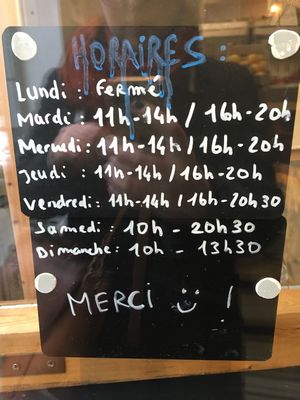 HORAIRES :
Lundi : Fermé
Mardi : 11h-14h / 16h-20h
Mercredi : 11h-14h / 16h-20h
Jeudi : 11h-14h / 16h-20h
Vendredi : 11h-14h / 16h-20h30
Samedi : 10h - 20h30
Dimanche : 10h - 13h30
MERCI !